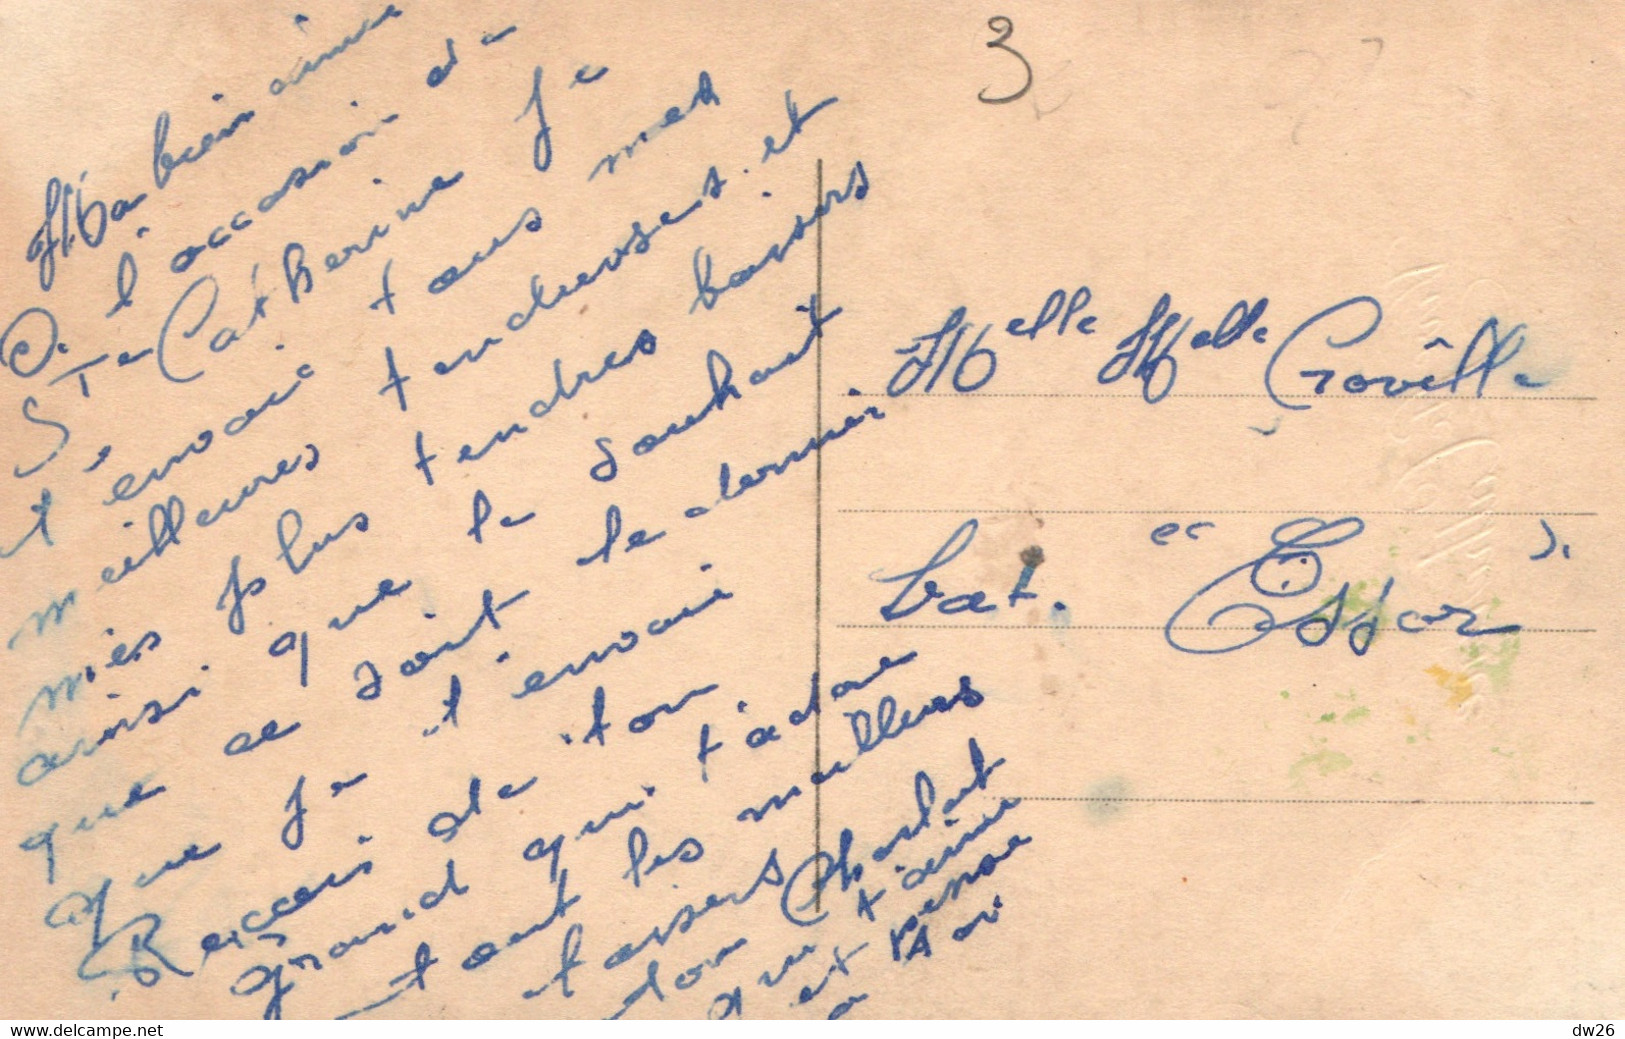 Ma bien aimée
A l'occasion de
Ste Catherine Je
t'envoie tous mes
meilleures tendresses et
mes plus tendres baisers
ainsi que le souhait
que ce soit le dernier
que je t'envoie
Reçois de ton
grand qui t'adore
tout les meilleurs
baisers
ton Charlot
qui t'aime
et pense
a toi
3
Melle Melle Crovêlle
bat. " Essor "
www.delcampe.net
dw26